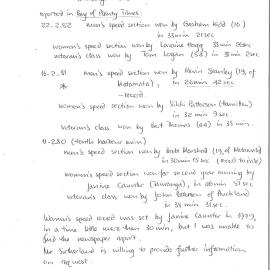 reported in Bay of Plenty Times:
22.2.82 men's speed section won by Graham Kidd (20)
in 33min 21sec
women's speed section won by Lorraine Hogg 38min 28sec
veteran's class won by Tom Logan (54) in 38min 2sec
16.2.81 men's speed section won by Kevin Stanley (19, of
* Matamata), in 26min 42sec
- record
women's speed section won by Vikki Patterson (Hamilton)
32 min 9 sec
veteran's class won by Bert Thomas (44) in 33 min.
4.2.80 (tenth harbour swim)
men's speed section won by Brett Marshall (19, of Matamata)
in 30min 15sec (record to date)
women's speed section for second year running by
Janine Caunter (Tauranga), in 36min 57sec
veterans class won by John Peterson of Auckland
in 38min 31sec.
Women's speed record was set by Janine Caunter in 1979,
in a time little more than 30 min, but I was unable to
find the newspaper report.
Mr Sutherland is willing to provide further information
on request.